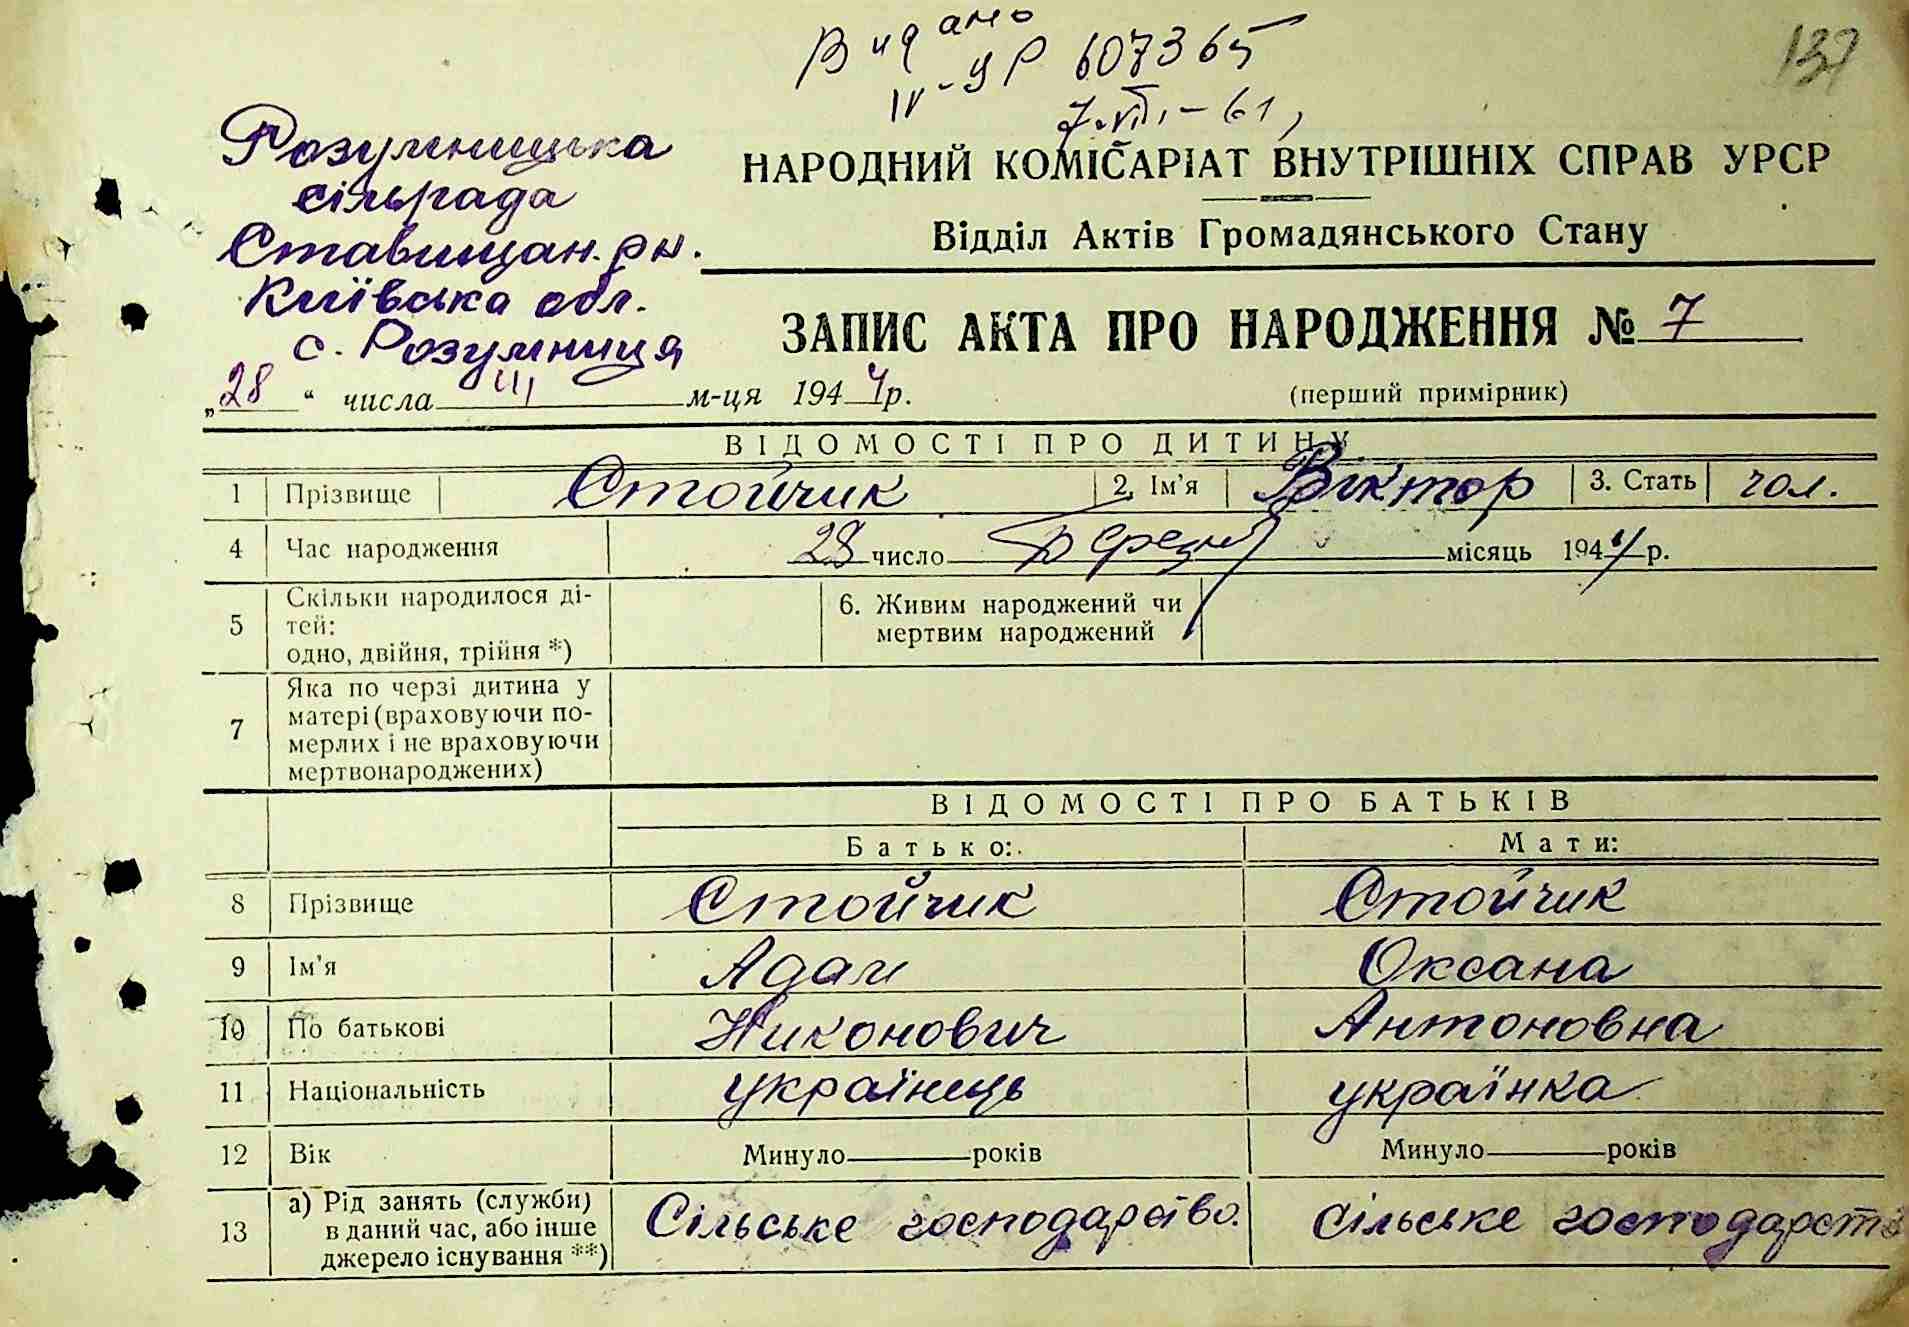 Видано
IV-УР 607365
7.VIII.-61,
137
Розумницька
сільрада
Ставищан. рн.
Київська обл.
с. Розумниця
НАРОДНИЙ КОМІСАРІАТ ВНУТРІШНІХ СПРАВ УРСР
Відділ Актів Громадянського Стану
ЗАПИС АКТА ПРО НАРОДЖЕННЯ № 7
„28“ числа III м-ця 1944 р.
(перший примірник)
ВІДОМОСТІ ПРО ДИТИНУ
1 Прізвище Стойчик 2. Ім'я Віктор 3. Стать чол.
4 Час народження 28 число березня місяць 1944 р.
5 Скільки народилося ді-
тей:
одно, двійня, трійня *)
6. Живим народжений чи
мертвим народжений
7 Яка по черзі дитина у
матері (враховуючи по-
мерлих і не враховуючи
мертвонароджених)
ВІДОМОСТІ ПРО БАТЬКІВ
Батько: Мати:
8 Прізвище Стойчик Стойчик
9 Ім'я Адам Оксана
10 По батькові Никонович Антоновна
11 Національність українець українка
12 Вік Минуло років Минуло років
13 а) Рід занять (служби)
в даний час, або інше
джерело існування **)
Сільське господарство. сільське господарство